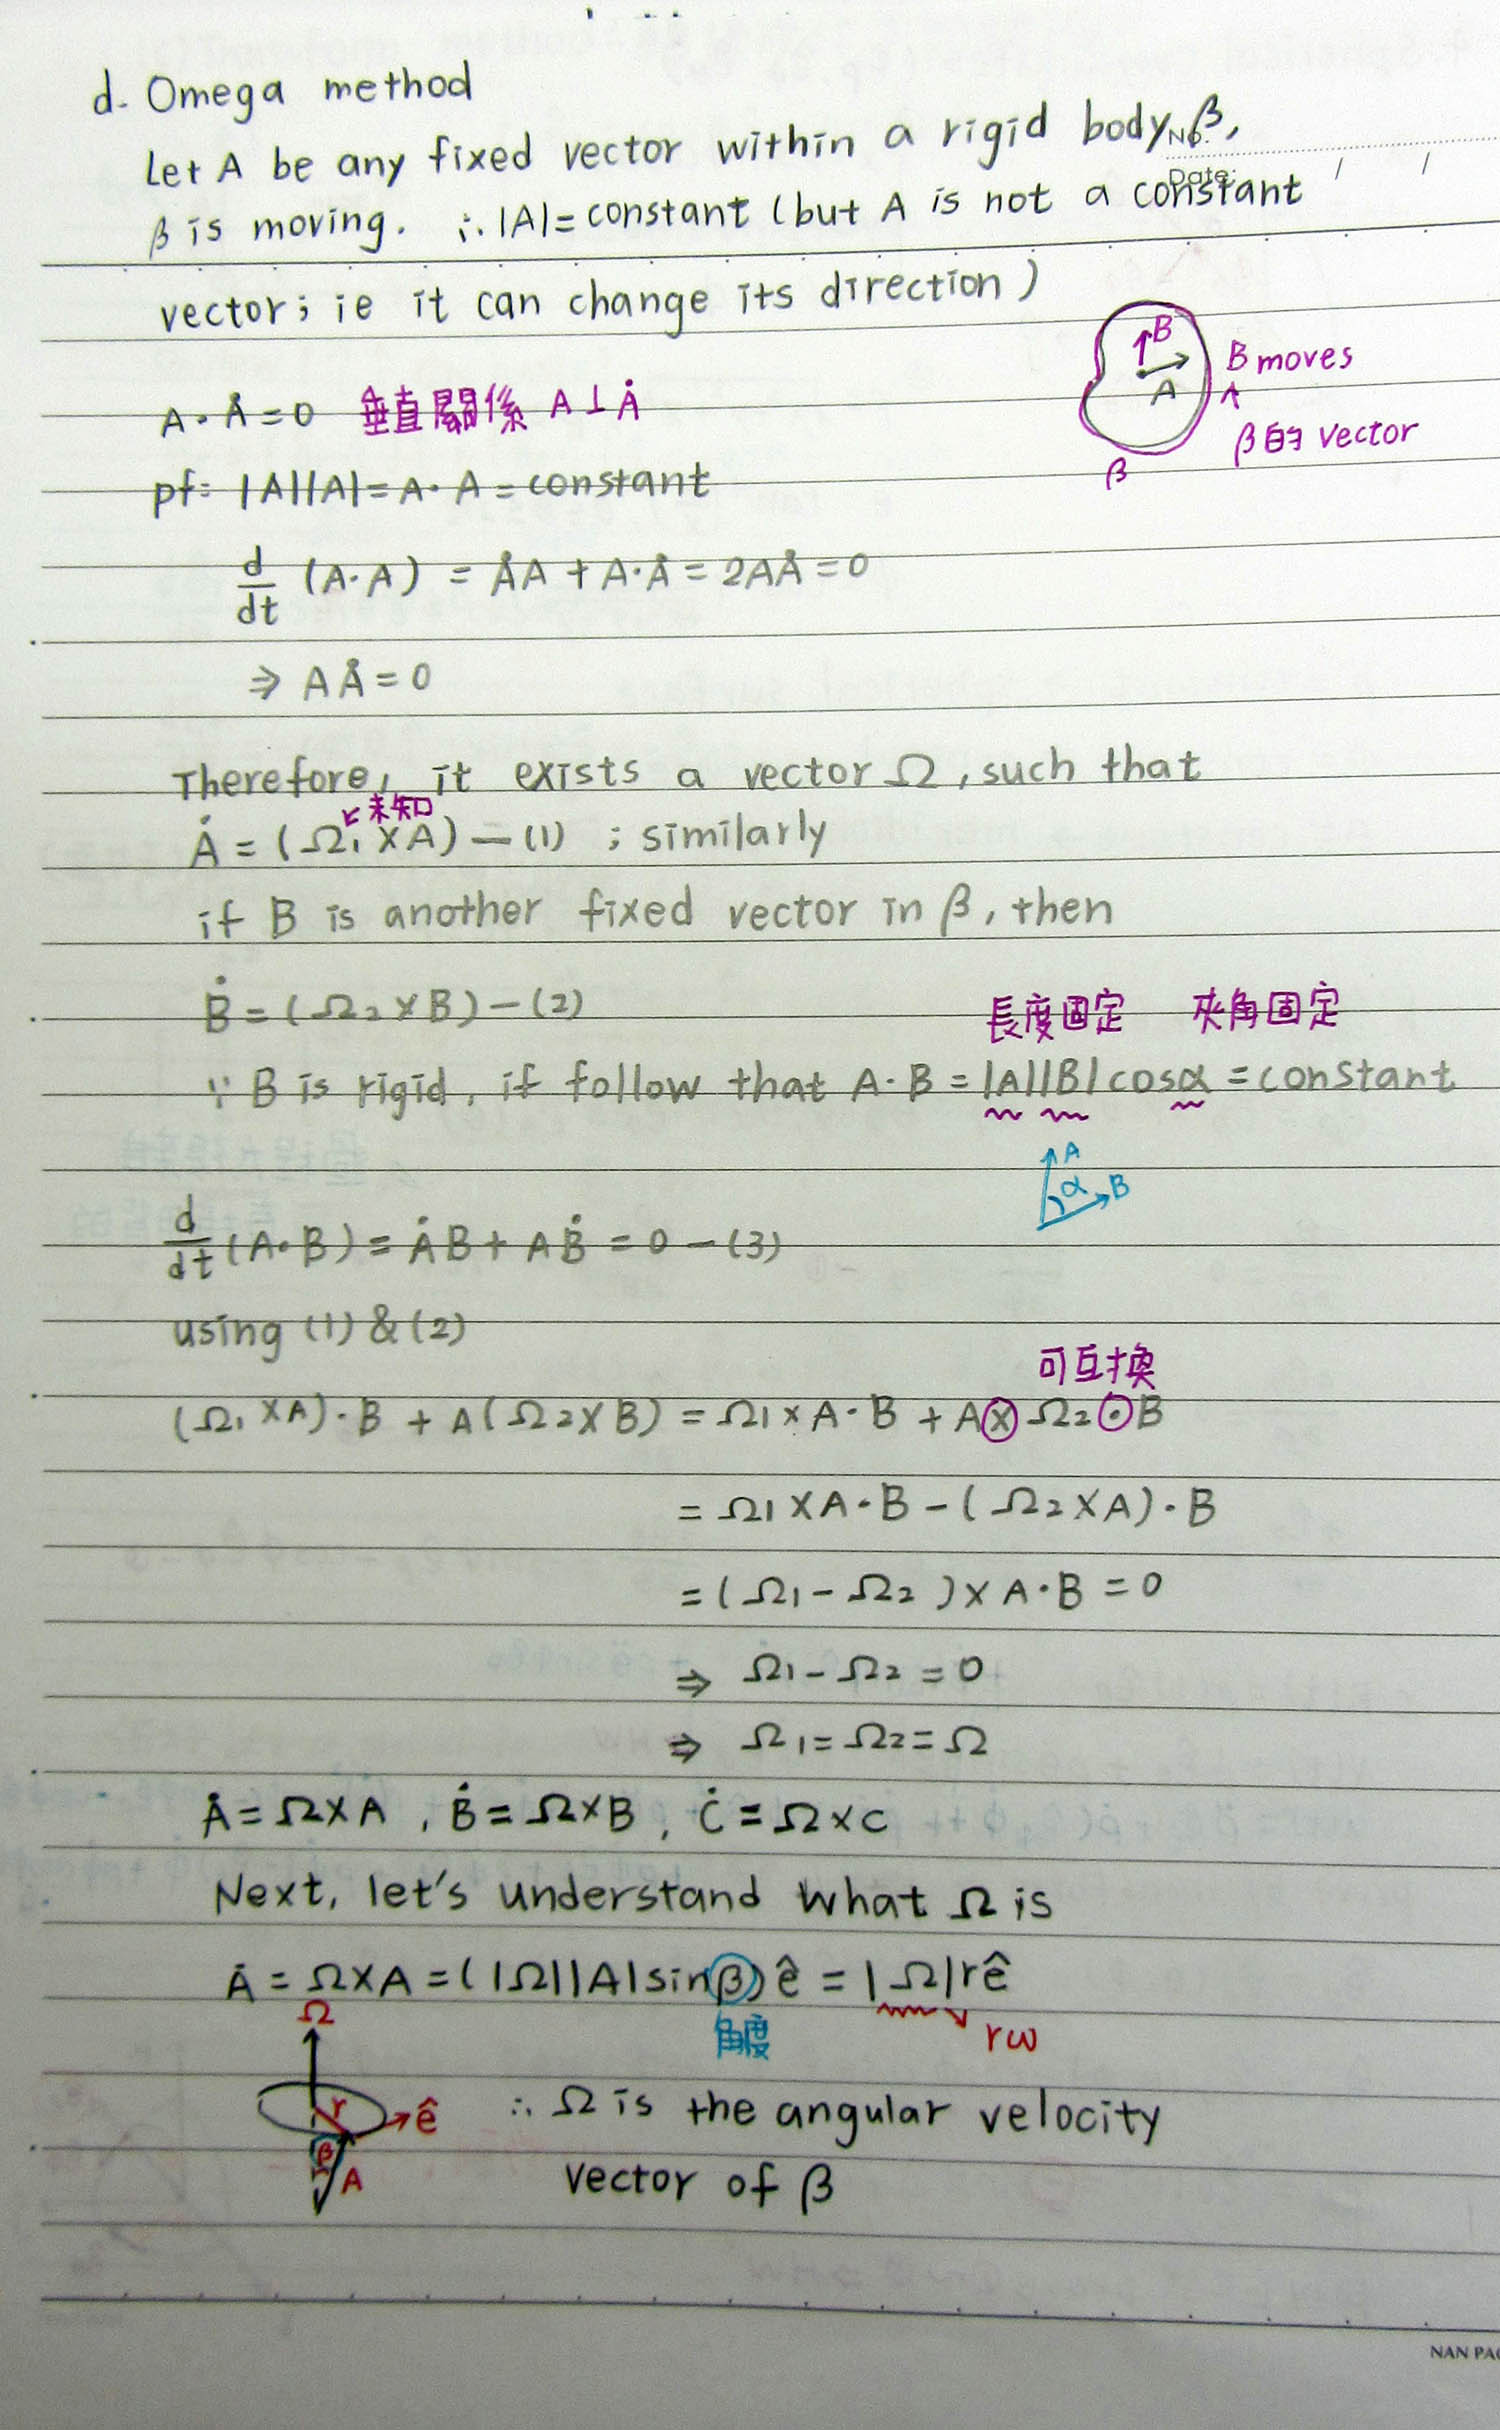 d. Omega method
No.
Let A be any fixed vector within a rigid body β,
Date:
β is moving. ∴ |A|= constant (but A is not a constant
vector; ie it can change its direction)
B
A
β
B moves
β的 vector
A · Ȧ = 0 垂直關係 A⊥Ȧ
pf: |A||A|= A· A = constant
d/dt (A·A) = ȦA + A·Ȧ = 2AȦ = 0
⇒ AȦ = 0
Therefore, it exists a vector Ω, such that
未知
Ȧ = (Ω₁ × A) — (1) ; similarly
if B is another fixed vector in β, then
Ḃ = (Ω₂ × B) — (2)
長度固定 夾角固定
∵ B is rigid, if follow that A·B = |A||B| cosα = constant
A
α
B
d/dt (A·B) = ȦB + AḂ = 0 — (3)
using (1) & (2)
可互換
(Ω₁ × A)·B + A(Ω₂ × B) = Ω₁ × A·B + A × Ω₂ · B
= Ω₁ × A·B − (Ω₂ × A)·B
= (Ω₁ − Ω₂) × A·B = 0
⇒ Ω₁ − Ω₂ = 0
⇒ Ω₁ = Ω₂ = Ω
Ȧ = Ω×A , Ḃ = Ω×B , Ċ = Ω×C
Next, let's understand what Ω is
Ȧ = Ω×A = (|Ω||A|sinβ) ê = |Ω|r ê
角度
rω
Ω
r
ê
β
A
∴ Ω is the angular velocity
vector of β